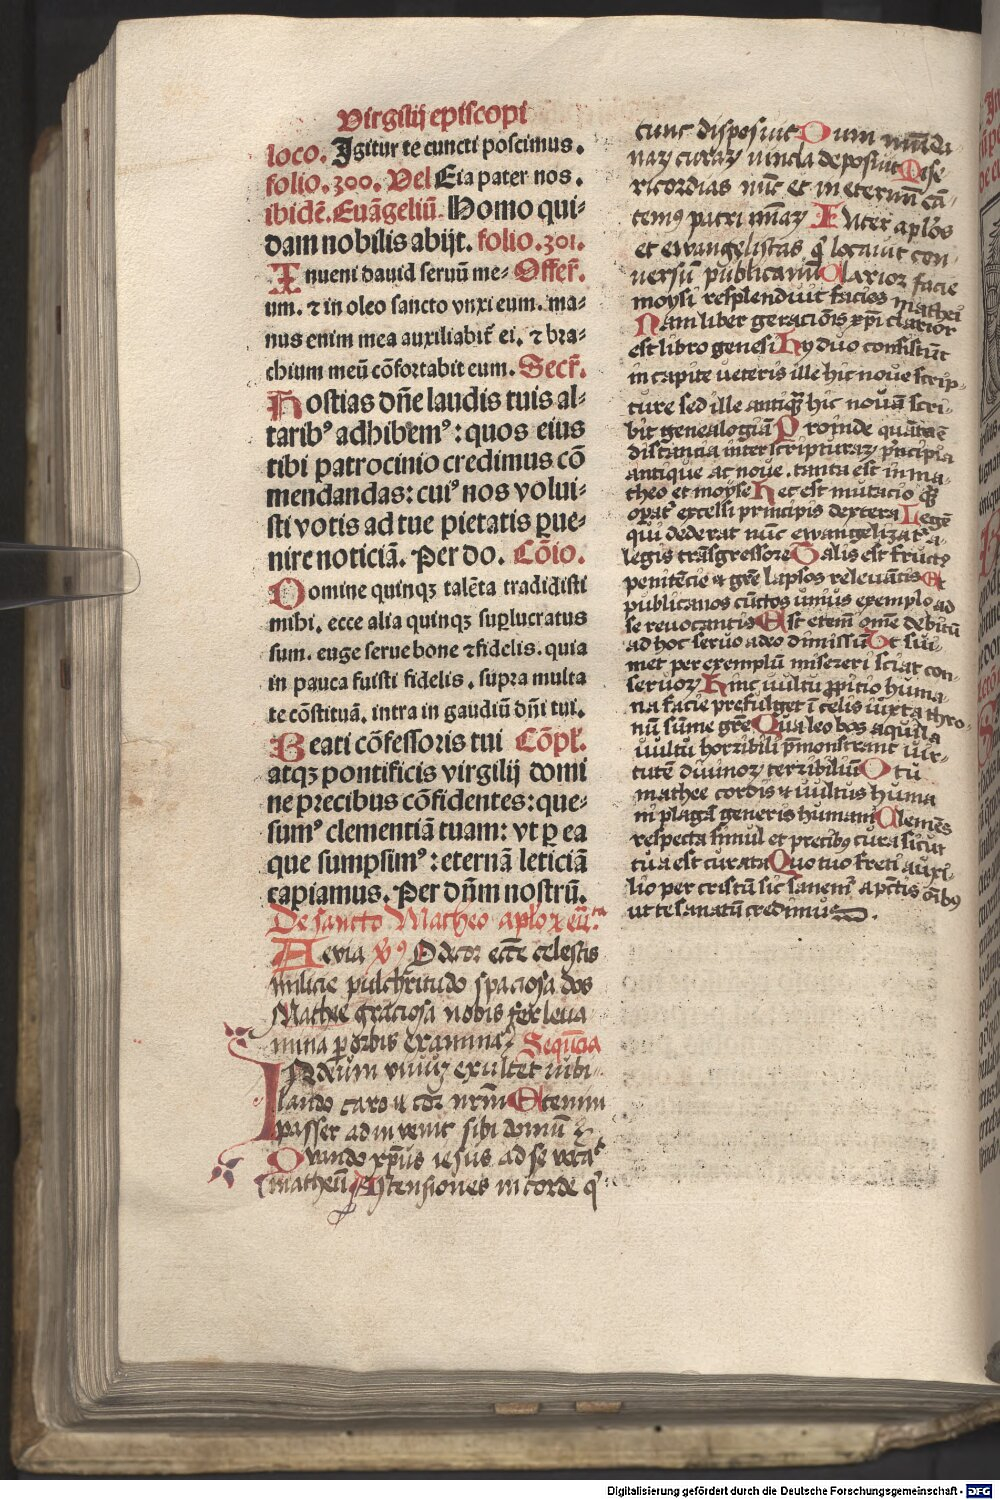 Virgilij episcopi
loco. Igitur te cuncti poscimus.
folio.300. Vel Eia pater nos.
ibidē. Euāgeliū. Homo qui-
dam nobilis abijt. folio.301.
Inueni dauid seruū me- Offer̄.
um. ⁊ in oleo sancto vnxi eum. ma-
nus enim mea auxiliabit̄ ei. ⁊ bra-
chium meū cōfortabit eum. Secr̄.
Hostias dn̄e laudis tuis al-
tarib⁹ adhibem⁹: quos eius
tibi patrocinio credimus cō
mendandas: cui⁹ nos volui-
sti votis ad tue pietatis ꝑue-
nire noticiā. Per do. Cōio.
Domine quinqꝫ talēta tradidisti
mihi. ecce alia quinqꝫ suꝑlucratus
sum. euge serue bone ⁊ fidelis. quia
in pauca fuisti fidelis. supra multa
te cōstituā. intra in gaudiū dn̄i tui.
Beati cōfessoris tui Cōpl̄.
atqꝫ pontificis virgilij domi
ne precibus cōfidentes: que-
sum⁹ clementiā tuam: vt ꝑ ea
que sumpsim⁹: eternā leticiā
capiamus. Per dn̄m nostrū.
De sancto Matheo aplo ⁊ eū.ta
Alleuia v⁹ O decor ecc̄e celestis
milicie pulchritudo spaciosa dos
Mathee graciosa nobis fer leua
mina ꝑ orbis examina Sequēcia
In deum viuuꝫ exultet iubi-
lando caro ⁊ cor nr̄m Etenim
passer adinvenit sibi domū
Quando xp̄us iesus ad se vocat
matheū Ascensiones in corde q̄
tunc disposuit Dum mūda
naꝝ curaꝝ vincla deposuit Mise
ricordias nūc et in eternū cā-
tem⁹ patri mīaꝝ Inter apl'os
et ewangelistas q̄ locauit con
uersū publicanū Clarior facie
moysi resplenduit facies mathei
Nam liber generaciōis xp̄i clarior
est libro genesi Hy duo consistūt
in capite veteris ille hic noue scrip-
ture sed ille antiqꝫ hic nouā scri-
bit genealogiā Proinde quāta ē
distancia inter scripturaꝝ p̄ncipia
antique ac noue. tanta est in ma-
theo et moyse Hec est mutacio qꝫ
oꝑat̄ excelsi principis dextera Legē
qui dederat nūc ewangelizat̄ a
legis trāsgressore Talis est fruct⁹
penitēcie ⁊ gr̄e lapsos releuātis Et
publicanos cūctos unius exemplo ad
se reuocantis Est etem̄ om̄e debitū
ad hoc seruo adeo dimissū Ut sui-
met per exemplū misereri sciat con-
seruoꝝ Hinc vultu ꝓpitio huma-
na facie prefulget ī celis iuxta thro-
nū sūme gr̄e Qua leo bos aquila
vultu horribili p̄monstrant vir-
tutē diuinoꝝ terribiliū O tu
mathee cordis ⁊ vultus huma
ni plagā generis humani Clemēs
respecta simul et precib⁹ cura sicut
tu a est curata Quo tuo freti auxi-
lio per cristū sic sanem̄ a pctīs oīb⁹
ut te sanatū credimus.
Digitalisierung gefördert durch die Deutsche Forschungsgemeinschaft - DFG